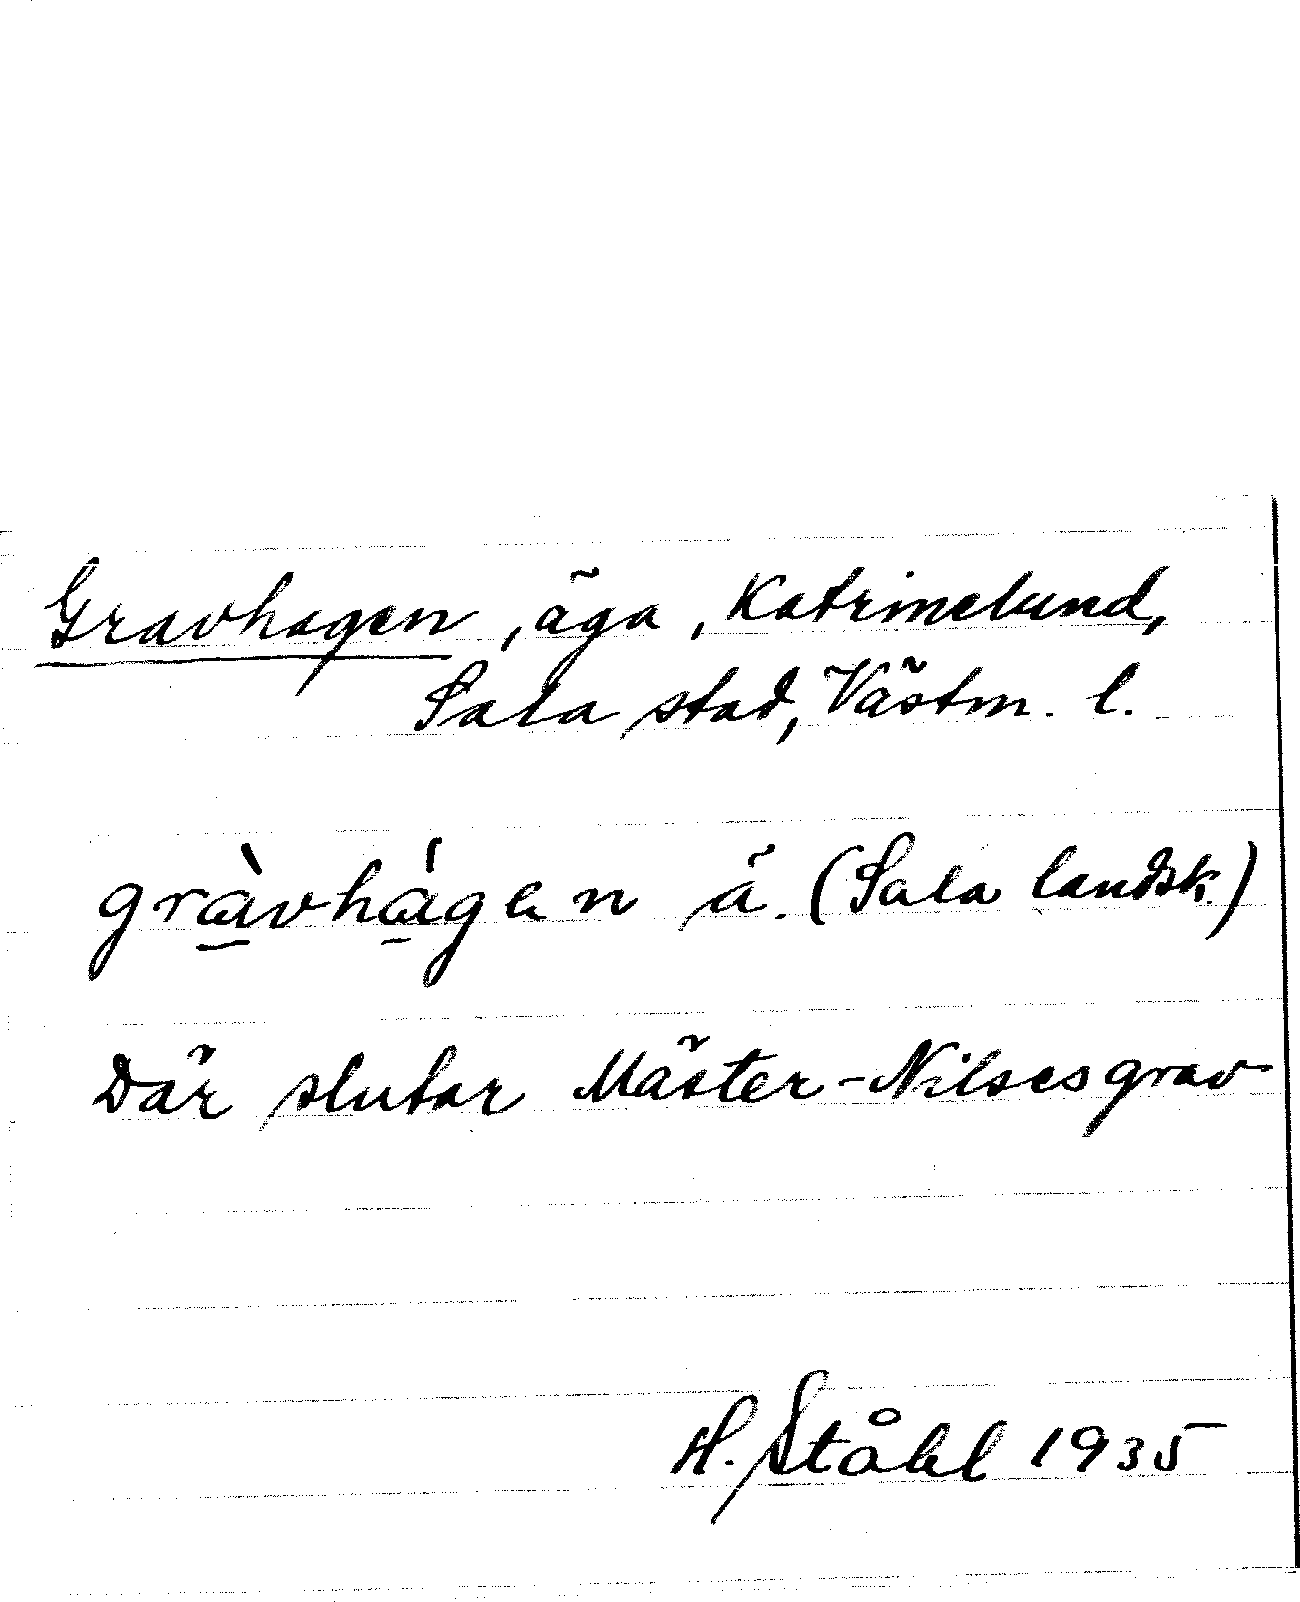 Gravhagen, äga, Katrinelund,
Sala stad, Västm. l.
grà̲vhá̲gen ä. (Sala landsk.)
Där slutar Mäster-Nilsesgrav
H. Ståhl 1935